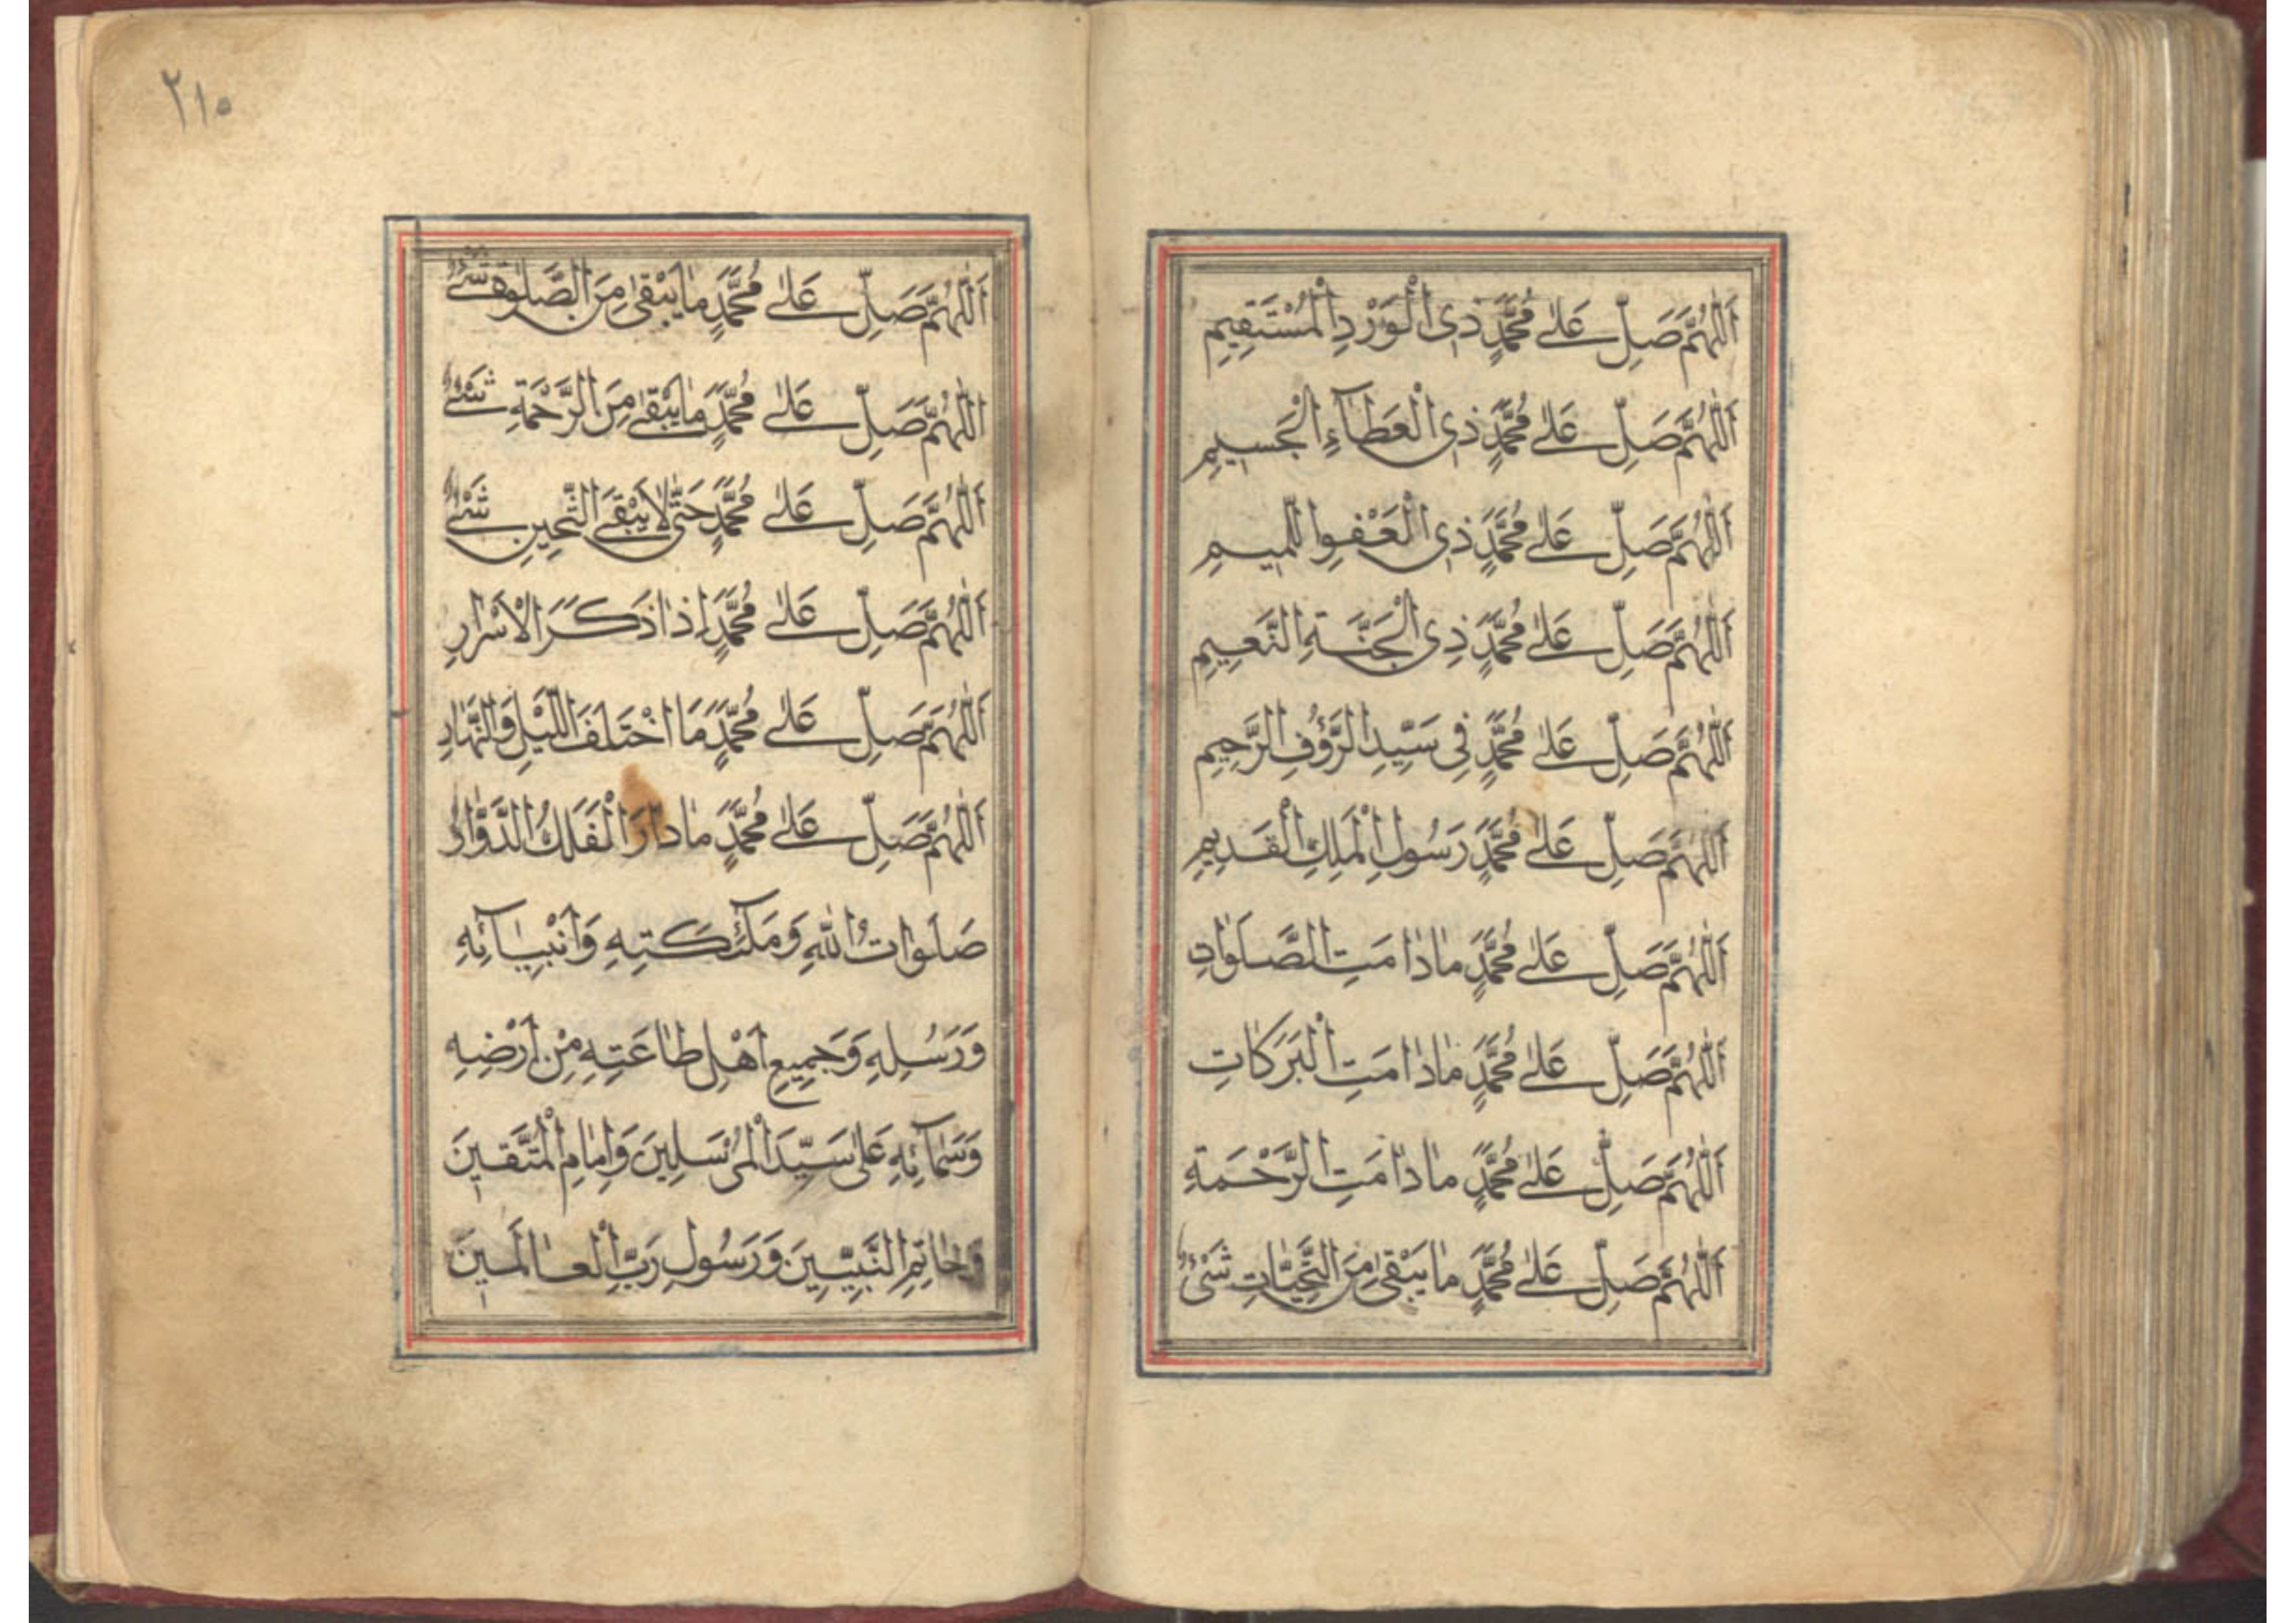 اَللّٰهُمَّ صَلِّ عَلٰى مُحَمَّدٍ ذِى الْوَرْدِ الْمُسْتَقِيمِ
اَللّٰهُمَّ صَلِّ عَلٰى مُحَمَّدٍ ذِى الْعَطَآءِ الْجَسِيمِ
اَللّٰهُمَّ صَلِّ عَلٰى مُحَمَّدٍ ذِى الْعَفْوِ
اَللّٰهُمَّ صَلِّ عَلٰى مُحَمَّدٍ ذِى الْجَنَّةِ النَّعِيمِ
اَللّٰهُمَّ صَلِّ عَلٰى مُحَمَّدٍ فِى سَيِّدِ الرَّؤُفِ الرَّحِيمِ
اَللّٰهُمَّ صَلِّ عَلٰى مُحَمَّدٍ رَسُولِ الْمَلِكِ الْقَدِيمِ
اَللّٰهُمَّ صَلِّ عَلٰى مُحَمَّدٍ مٰا دٰامَتِ الصَّلَوٰاتِ
اَللّٰهُمَّ صَلِّ عَلٰى مُحَمَّدٍ مٰا دٰامَتِ الْبَرَكَاتِ
اَللّٰهُمَّ صَلِّ عَلٰى مُحَمَّدٍ مٰا دٰامَتِ الرَّحْمَةِ
اَللّٰهُمَّ صَلِّ عَلٰى مُحَمَّدٍ مٰا يَبْقٰى مِنَ التَّحِيَّاتِ شَىْءٌ
٢١٥
اَللّٰهُمَّ صَلِّ عَلٰى مُحَمَّدٍ مٰا يَبْقٰى مِنَ الصَّلٰوةِ شَىْءٌ
اَللّٰهُمَّ صَلِّ عَلٰى مُحَمَّدٍ مٰا يَبْقٰى مِنَ الرَّحْمَةِ شَىْءٌ
اَللّٰهُمَّ صَلِّ عَلٰى مُحَمَّدٍ حَتّٰى لٰا يَبْقَى شَىْءٌ
اَللّٰهُمَّ صَلِّ عَلٰى مُحَمَّدٍ اِذٰا ذَكَرَ الْاَسْرٰارِ
اَللّٰهُمَّ صَلِّ عَلٰى مُحَمَّدٍ مَا اخْتَلَفَ اللَّيْلِ وَالنَّهٰارِ
اَللّٰهُمَّ صَلِّ عَلٰى مُحَمَّدٍ مٰا دٰارَ الْفَلَكُ الدَّوّٰارُ
صَلَوٰاتُ اللّٰهِ وَمَلٰٓئِكَتِهِ وَاَنْبِيٰآئِهِ
وَرَسُلِهِ وَجَمِيعِ اَهْلِ طٰاعَتِهِ مِنْ اَرْضِهِ
وَسَمٰآئِهِ عَلٰى سَيِّدَ الْمُرْسَلِينَ وَاِمٰامِ الْمُتَّقِينَ
وَخٰاتِمِ النَّبِيِّينَ وَرَسُولِ رَبِّ الْعٰالَمِينَ